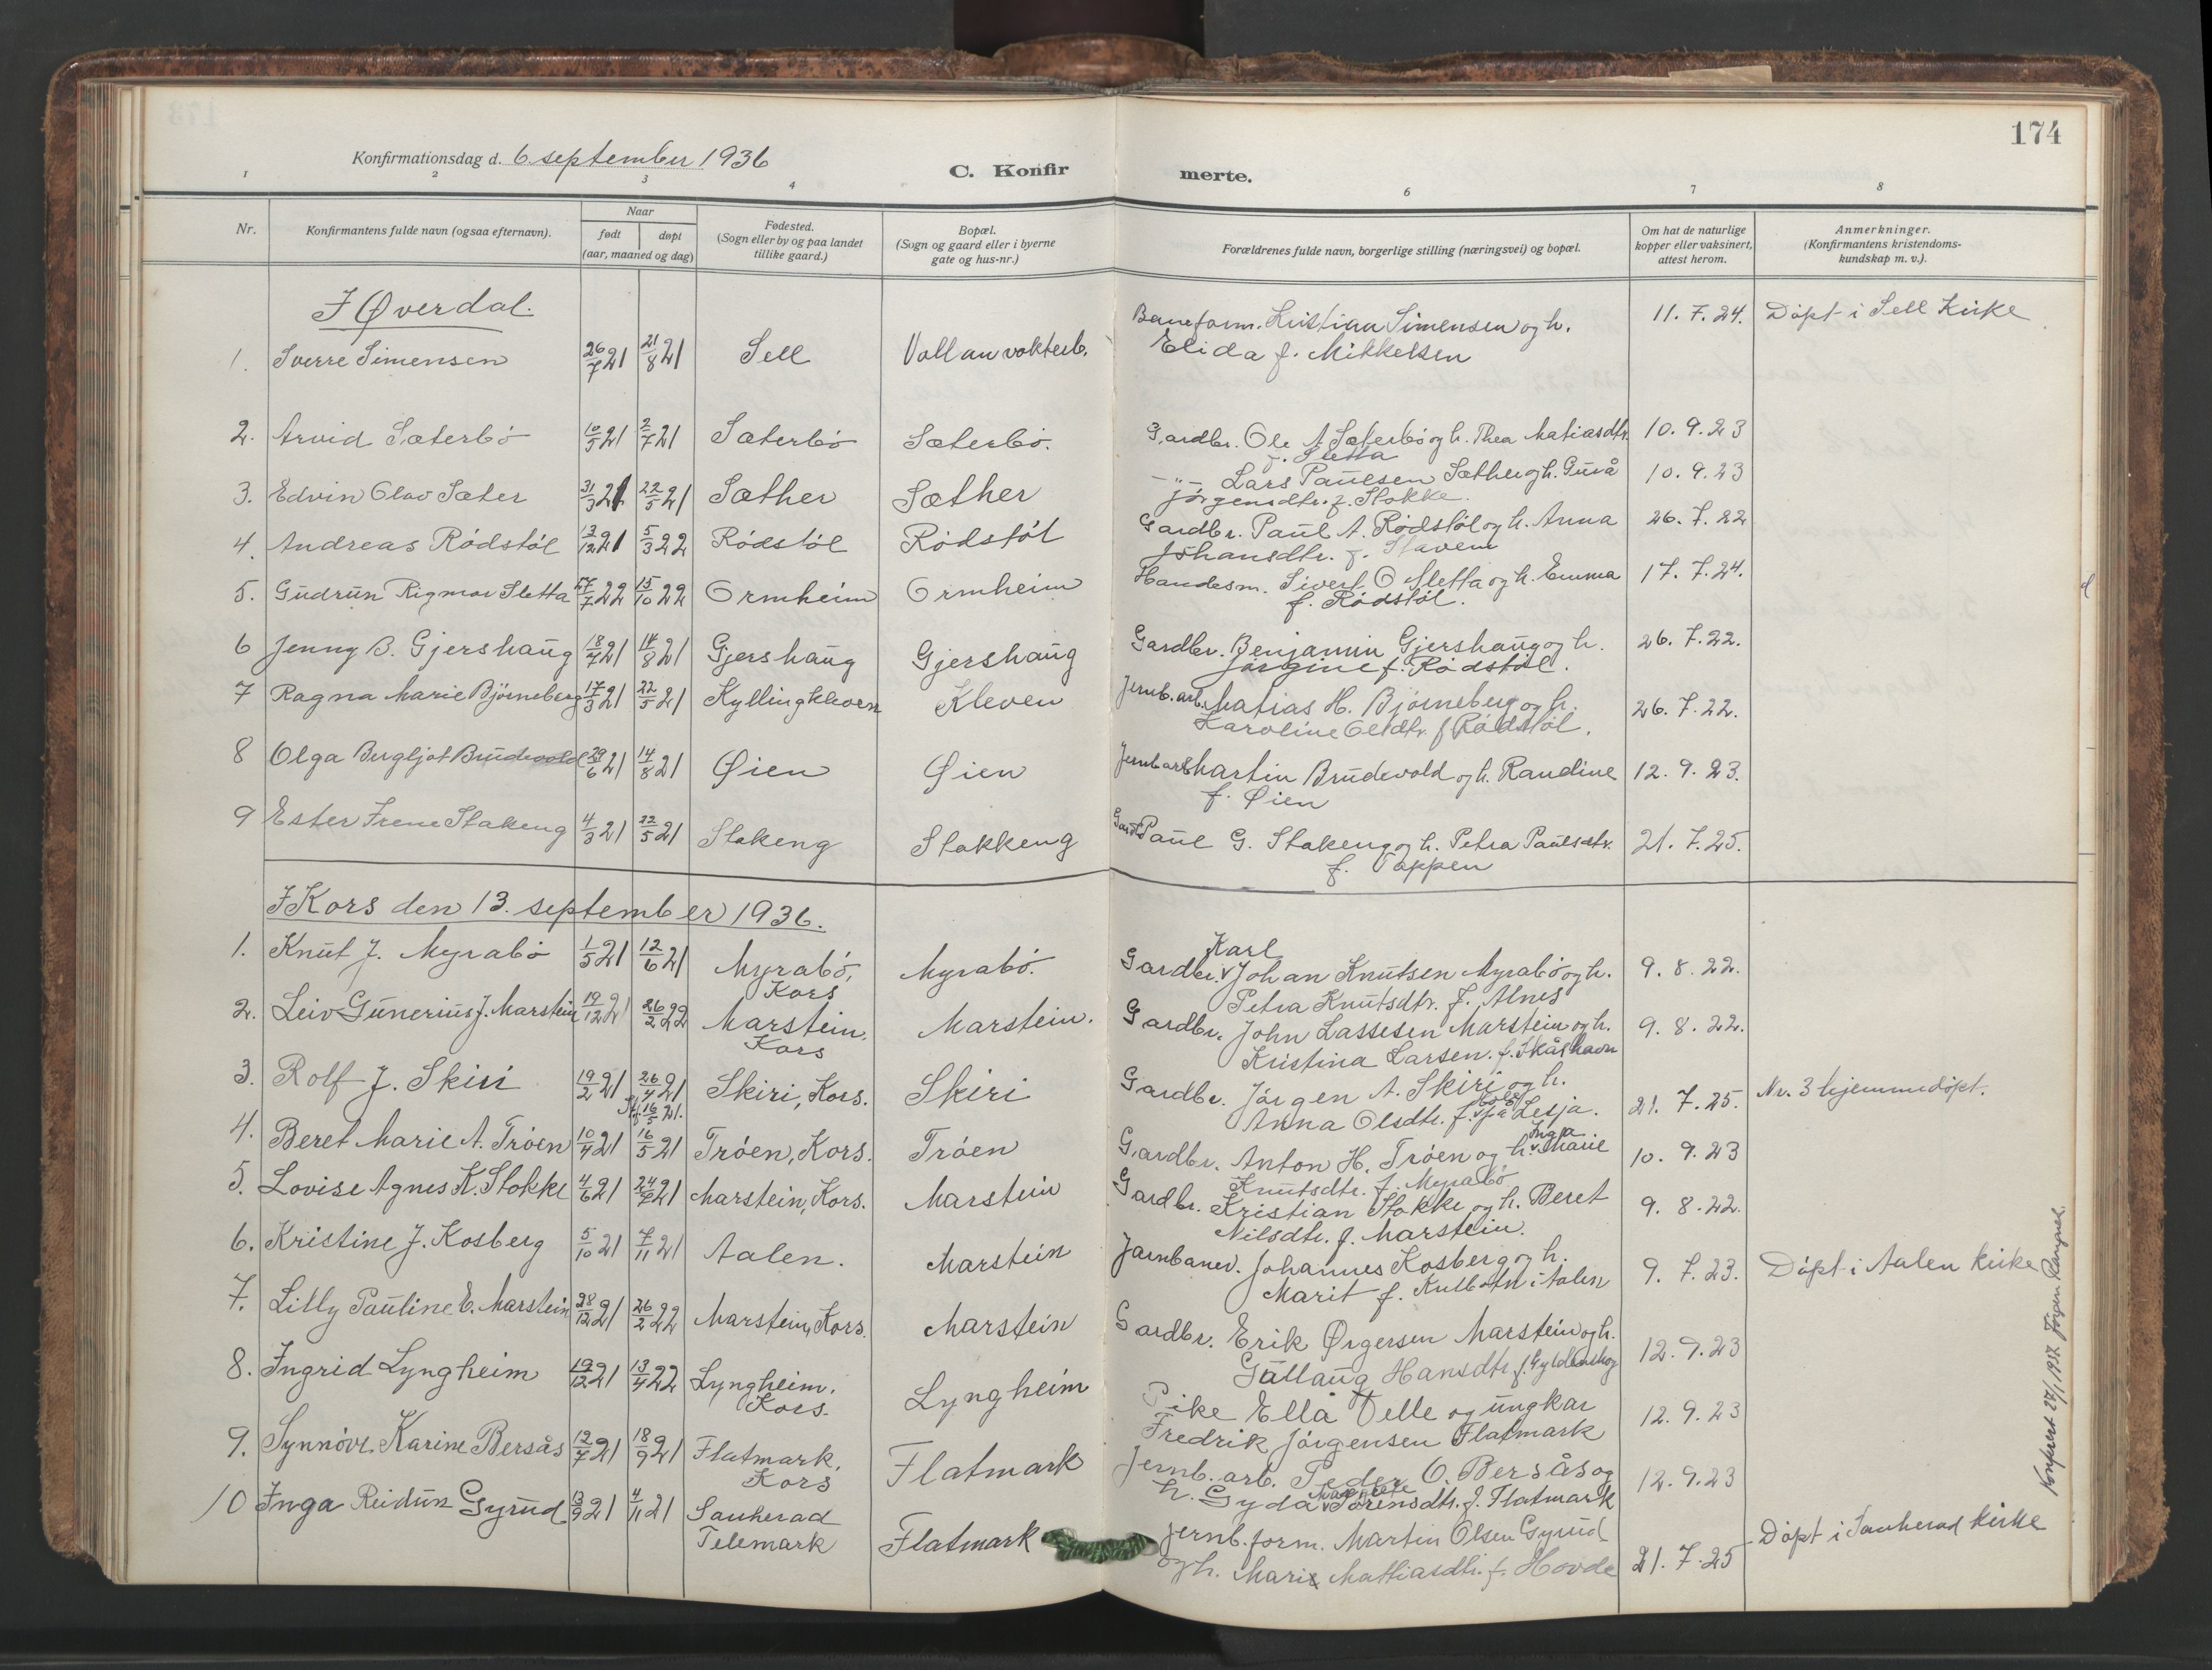 174
Konfirmationsdag d. 6 september 1936
C. Konfirmerte.
1 2 3 4 6 7 8
Nr.
Konfirmantens fulde navn (ogsaa efternavn).
Naar
født døpt
(aar, maaned og dag)
Fødested.
(Sogn eller by og paa landet
tillike gaard.)
Bopæl.
(Sogn og gaard eller i byerne
gate og hus-nr.)
Forældrenes fulde navn, borgerlige stilling (næringsvei) og bopæl.
Om hat de naturlige
kopper eller vaksinert,
attest herom.
Anmerkninger.
(Konfirmantens kristendoms-
kundskap m. v.).
I Øverdal.
1. Sverre Simensen 26/7 21 21/8 21 Sell Vollan vokterb. Baneform. Kristian Simensen og h. 11.7.24. Döpt i Sell Kirke
Elida f. Mikkelsen
2. Arvid Sæterbö 10/5 21 2/7 21 Sæterbö Sæterbö. Gardbr. Ole A. Sæterbö og h. Thea Matiasdtr. 10.9.23
f. Sletta
3. Edvin Olav Sæter 31/3 21 22/5 21 Sæther Sæther -"- Lars Paulsen Sæther og h. Guvå 10.9.23
Jörgensdtr. f. Stokke.
4. Andreas Rödstöl 13/12 21 5/3 22 Rödstöl Rödstöl Gardbr. Paul A. Rödstöl og h. Anna 26.7.22
Johansdtr. f. Stavem
5. Gudrun Rigmor Sletta 27/7 22 15/10 22 Ormheim Ormheim Handesm. Sivert O Sletta og h. Emma 17.7.24.
f. Rödstöl.
6 Jenny B. Gjershaug 18/7 21 14/8 21 Gjershaug Gjershaug Gardbr. Benjamin Gjershaug og h. 26.7.22.
Jörgine f. Rödstöl.
7 Ragna Marie Björneberg 17/3 21 22/5 21 Kyllingkleven Kleven Jernb.arb. Matias H. Björneberg og h. 26.7.22.
Karoline Olsdtr. f Rödstöl.
8 Olga Bergljot Brudevold 29/6 21 14/8 21 Øien Øien Jernb arb Martin Brudevold og h. Randine 12.9.23.
f. Øien
9 Ester Irene Stakeng 4/3 21 22/5 21 Stakeng Stakkeng Gardb. Paul G. Stakeng og h. Petra Paulsdtr. 21.7.25.
f. Tappen
I Kors den 13. september 1936.
1. Knut J. Myrabö 1/5 21 12/6 21 Myrabö, Kors Myrabö. Gardbr. Karl Johan Knutsen Myrabö og h. 9.8.22.
Petra Knutsdtr. f. Alnes
2. Leiv Gunerius J. Marstein 19/12 21 26/2 22 Marstein, Kors Marstein. Gardbr. John Lassesen Marstein og h. 9.8.22.
Kristina Larsen. f. Skåshavn
3. Rolf J. Skiri 19/2 21 26/4 21 St.f. 16/5 21. Skiri, Kors. Skiri Gardbr. Jörgen A. Skiri og h. 21.7.25. Nr. 3 hjemmedöpt.
Anna Olsdtr. f. på Lesja.
4. Beret Marie A. Tröen 10/4 21 16/5 21 Tröen, Kors. Tröen Gardbr. Anton H. Tröen og h. Inga Marie 10.9.23
Knutsdtr. f. Myrabö
5. Lovise Agnes K. Stokke 4/6 21 24/7 21 Marstein, Kors. Marstein Gardbr. Kristian Stokke og h. Beret 9.8.22.
Nilsdtr. f. Marstein.
6. Kristine J. Kosberg 5/10 21 7/11 21 Aalen. Marstein Jarnbanev. Johannes Kosberg og h. 9.7.23. Döpt i Aalen kirke
Marit f. i Aalen
7. Lilly Pauline E. Marstein 28/12 21 26/2 22 Marstein, Kors. Marstein Gardbr. Erik Ørgersen Marstein og h. 12.9.23
Gullaug Hansdtr. f. Gyldenskog
8. Ingrid Lyngheim 19/12 21 13/4 22 Lyngheim, Kors. Lyngheim Pike Ella Velle og ungkar 12.9.23
Fredrik Jörgensen Flatmark
9. Synnöve Karine Bersås 12/7 21 18/9 21 Flatmark, Kors Flatmark Jernb. arb. Peder O. Bersås og 12.9.23
h. Gyda Margrete Sörensdtr. f. Flatmark
10 Inga Reidun Gyrud 13/9 21 4/11 21 Sauherad Telemark Flatmark Jernb. form. Martin Olsen Gyrud 21.7.25 Döpt i Sauherad kirke
og h. Marie Mattiasdtr. f. Hovde
Konferert 27/1 1937. Jörgen